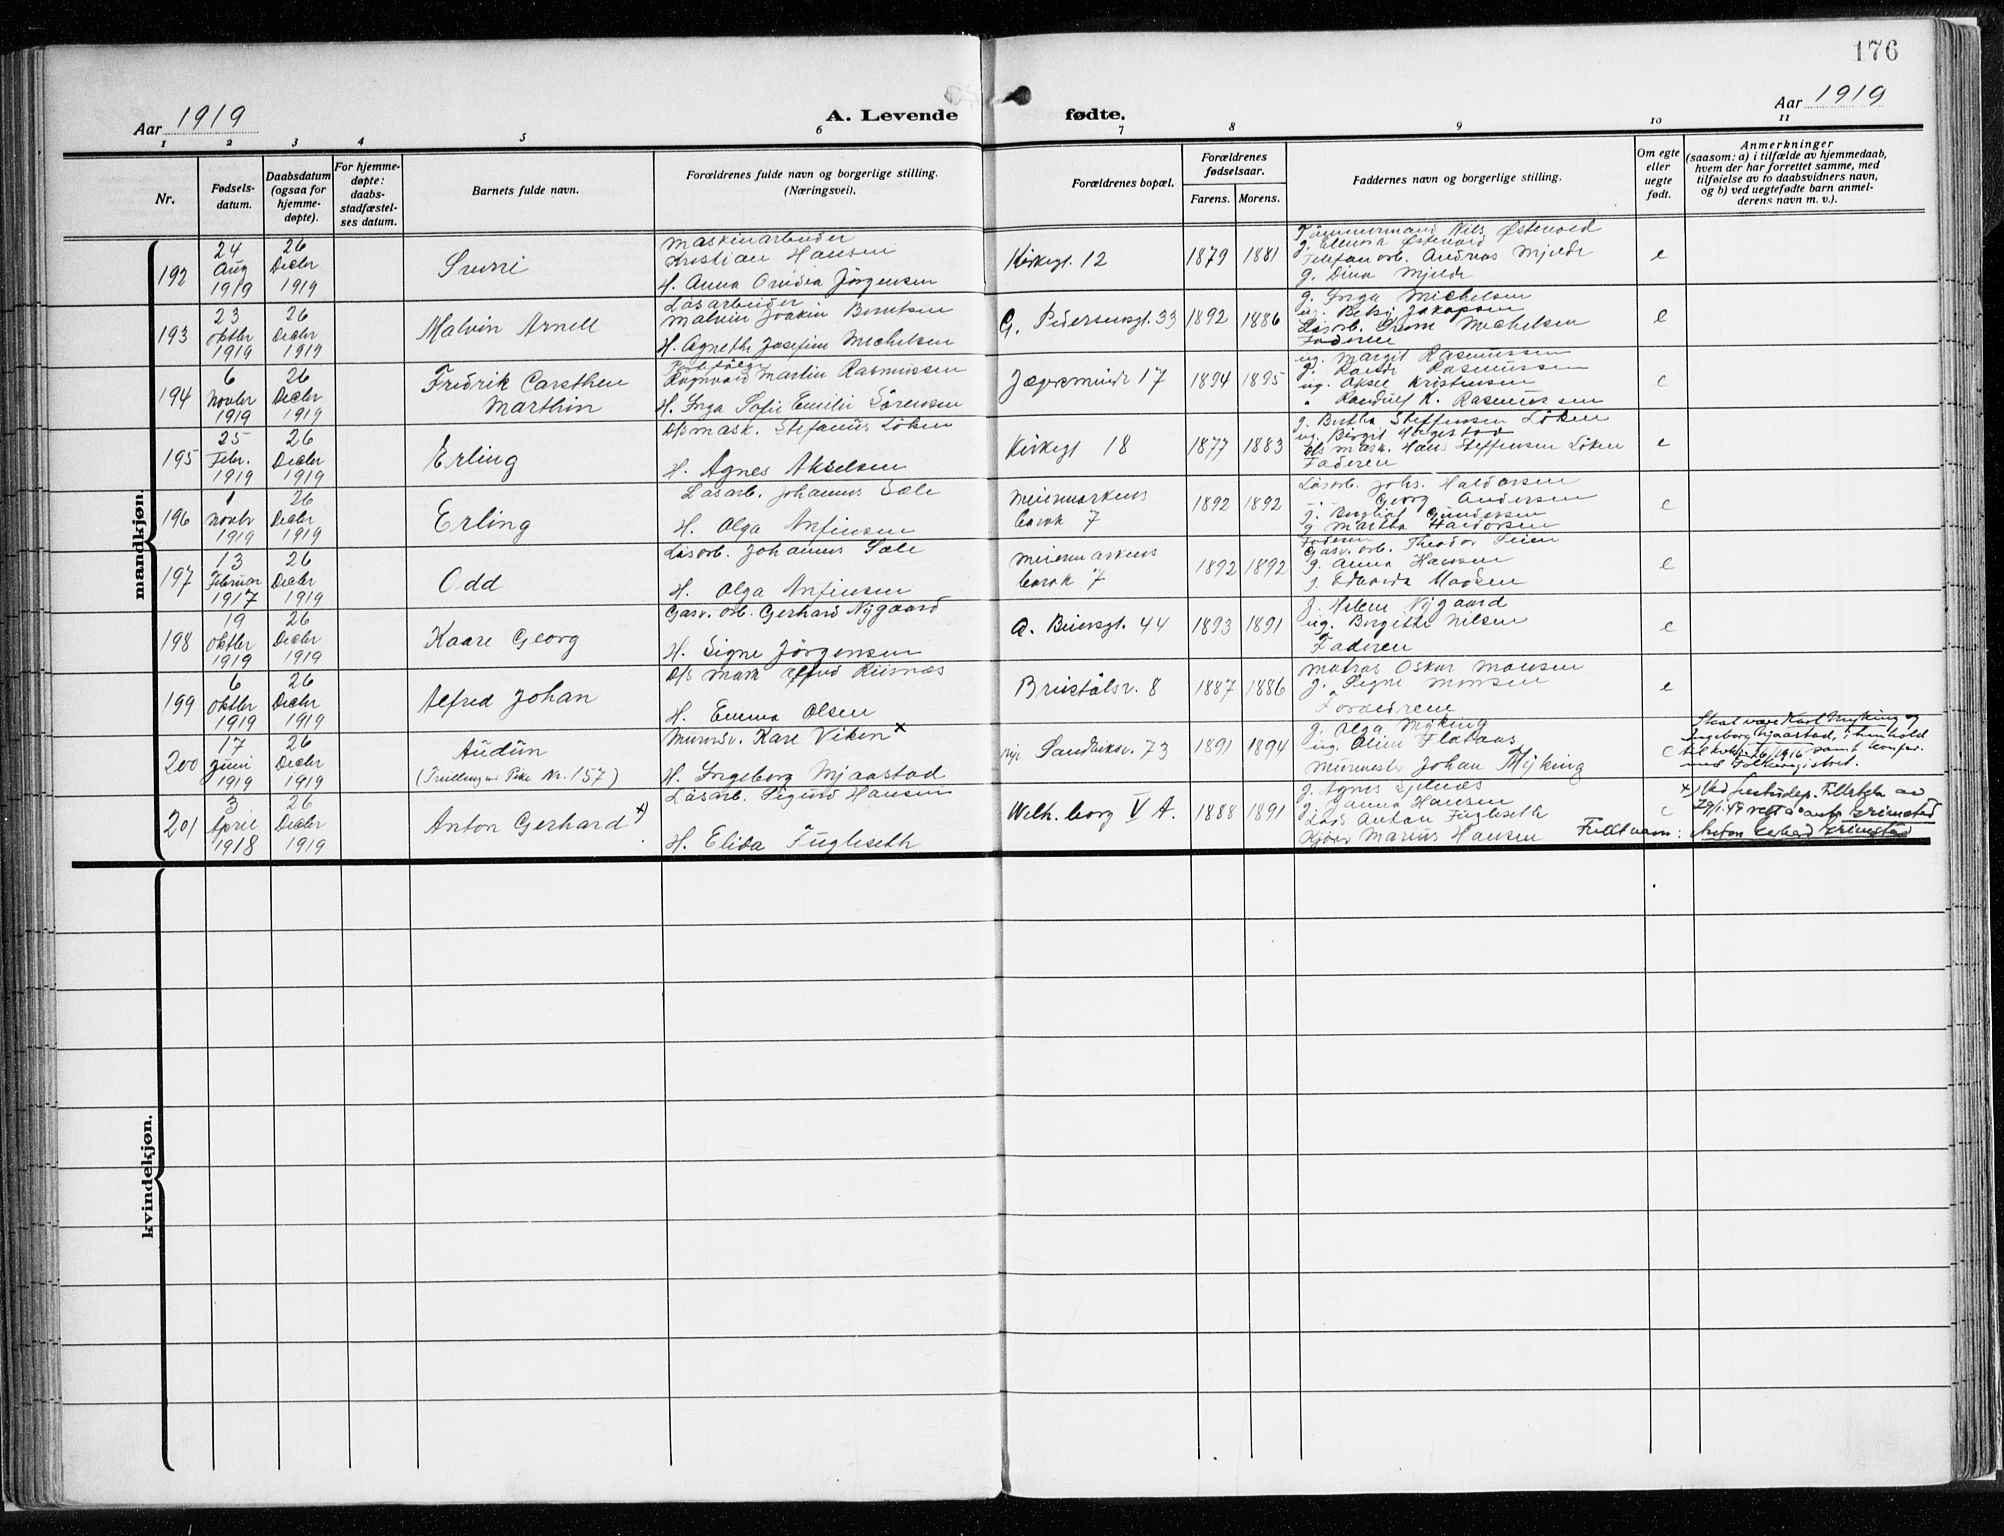 176
Aar 1919
A. Levende fødte.
Aar 1919
1 2 3 4 5 6 7 8 9 10 11
Nr.
Fødsels-
datum.
Daabsdatum
(ogsaa for
hjemme-
døpte).
For hjemme-
døpte:
daabs
stadfæstel-
ses datum.
Barnets fulde navn.
Forældrenes fulde navn og borgerlige stilling.
(Næringsvei).
Forældrenes bopæl.
Forældrenes
fødselsaar.
Farens. Morens.
Faddernes navn og borgerlige stilling.
Om egte
eller
uegte
født.
Anmerkninger
(saasom: a) i tilfælde av hjemmedaab,
hvem der har forrettet samme, med
tilføielse av to daabsvidners navn,
og b) ved uegtefødte barn anmel-
derens navn m. v.).
mandkjøn.
192
24
Aug
1919
26
Decbr
1919
Maskinarbeider
Kristian Hansen
H. Anna Jørgensen
Kirkegt. 12
1879 1881
Tømmermand Nils Østevold
g. Østevold
Telefonarb. Andreas Mjelde
g. Dina Mjelde
e
193
23
Oktbr
1919
26
Decbr
1919
Malvin Arnell
Løsarbeider
Malvin Joakim Berntsen
H. Agnethe Josefine Michelsen
G. Pedersensgt. 33
1892 1886
g. Inga Michelsen
ug. Betsy Jakopsen
Løsarb. Michelsen
Faderen
e
194
6
Novbr
1919
26
Decbr
1919
Fredrik Carsthen
Marthin
Ragnvald Martin Rasmussen
H. Inga Sofie Emilie Sørensen
Jægersminde 17
1894 1895
ug. Margit Rasmussen
Rasmussen
ug. Aksel Kristensen
" Randulf K. Rasmussen
e
195
25
Febr.
1919
26
Decbr
1919
Erling
D/S mask. Stefanus Løken
H. Agnes Akselsen
Kirkegt 18
1877 1883
g. Bertha Steffensen Løken
ug. Birgit
D/S mask. Hans Steffensen Løken
Faderen
e
196
1
Novbr
1919
26
Decbr
1919
Erling
Løsarb. Johannes Sæle
H. Olga Arfinsen
Meiermarkens
barak 7
1892 1892
Løsarb. Johs. Haldorsen
" Georg Andersen
g. Gundersen
g Martha Haldorsen
e
197
13
Februar
1917
26
Decbr
1919
Odd
Løsarb. Johannes Sæle
H. Olga Arfinsen
Meiermarkens
barak 7
1892 1892
Faderen
Gasv. arb. Theodor Seien
g. Anna Hansen
g. Edvarda Madsen
e
198
19
Oktbr
1919
26
Decbr
1919
Kaare Georg
Gasv. arb. Gerhard Nygaard
H. Signe Jørgensen
A. Beiersgt. 44
1893 1891
g. Helene Nygaard
ug. Borgette Nilsen
Faderen
e
199
6
Oktbr
1919
26
Decbr
1919
Alfred Johan
D/S mask Alfred Riisnæs
H. Emma Olsen
Breistølsv. 8
1887 1886
Matros Oskar Monsen
g. Signe Monsen
Forældrene
e
200
17
Juni
1919
26
Decbr
1919
Audun
(Tvilling av Pike Nr. 157)
Murmsv. Karl Viken x
H. Ingeborg Mjaastad
Sandviksv. 73
1891 1894
g. Olga Myking
ug. Oline Flataas
Murmester Johan Myking
e
Skal være Karl Myking og
Ingeborg Mjaastad, i henhold
til 26/1916 samt konfer.
med Folkeregistret.
201
3
April
1918
26
Decbr
1919
Anton Gerhard x)
Løsarb. Sigurd Hansen
H. Elida Fugleseth
Welh. borg V A.
1888 1891
g. Agnes
g. Hanna Hansen
Lods Anton Fugleseth
Kjører Marius Hansen
e
x) Ved Justisdep. tillatelse av
29/1.47 rett å anta Grimstad
Fullt navn: Anton Gerhard Grimstad
kvindekjøn.